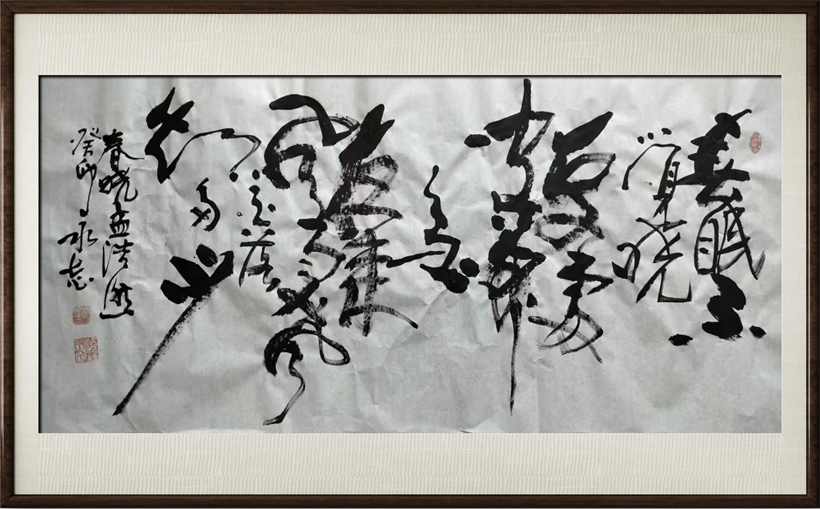 春眠不
觉晓
處處
聞啼
鸟
夜来
風雨声
花落
知多少
春晓孟浩然
癸卯永志